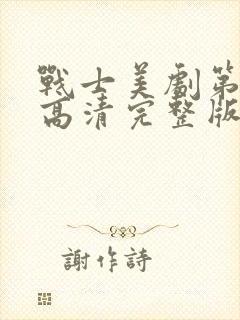 戰士美劇第
高清完整版
謝作詩